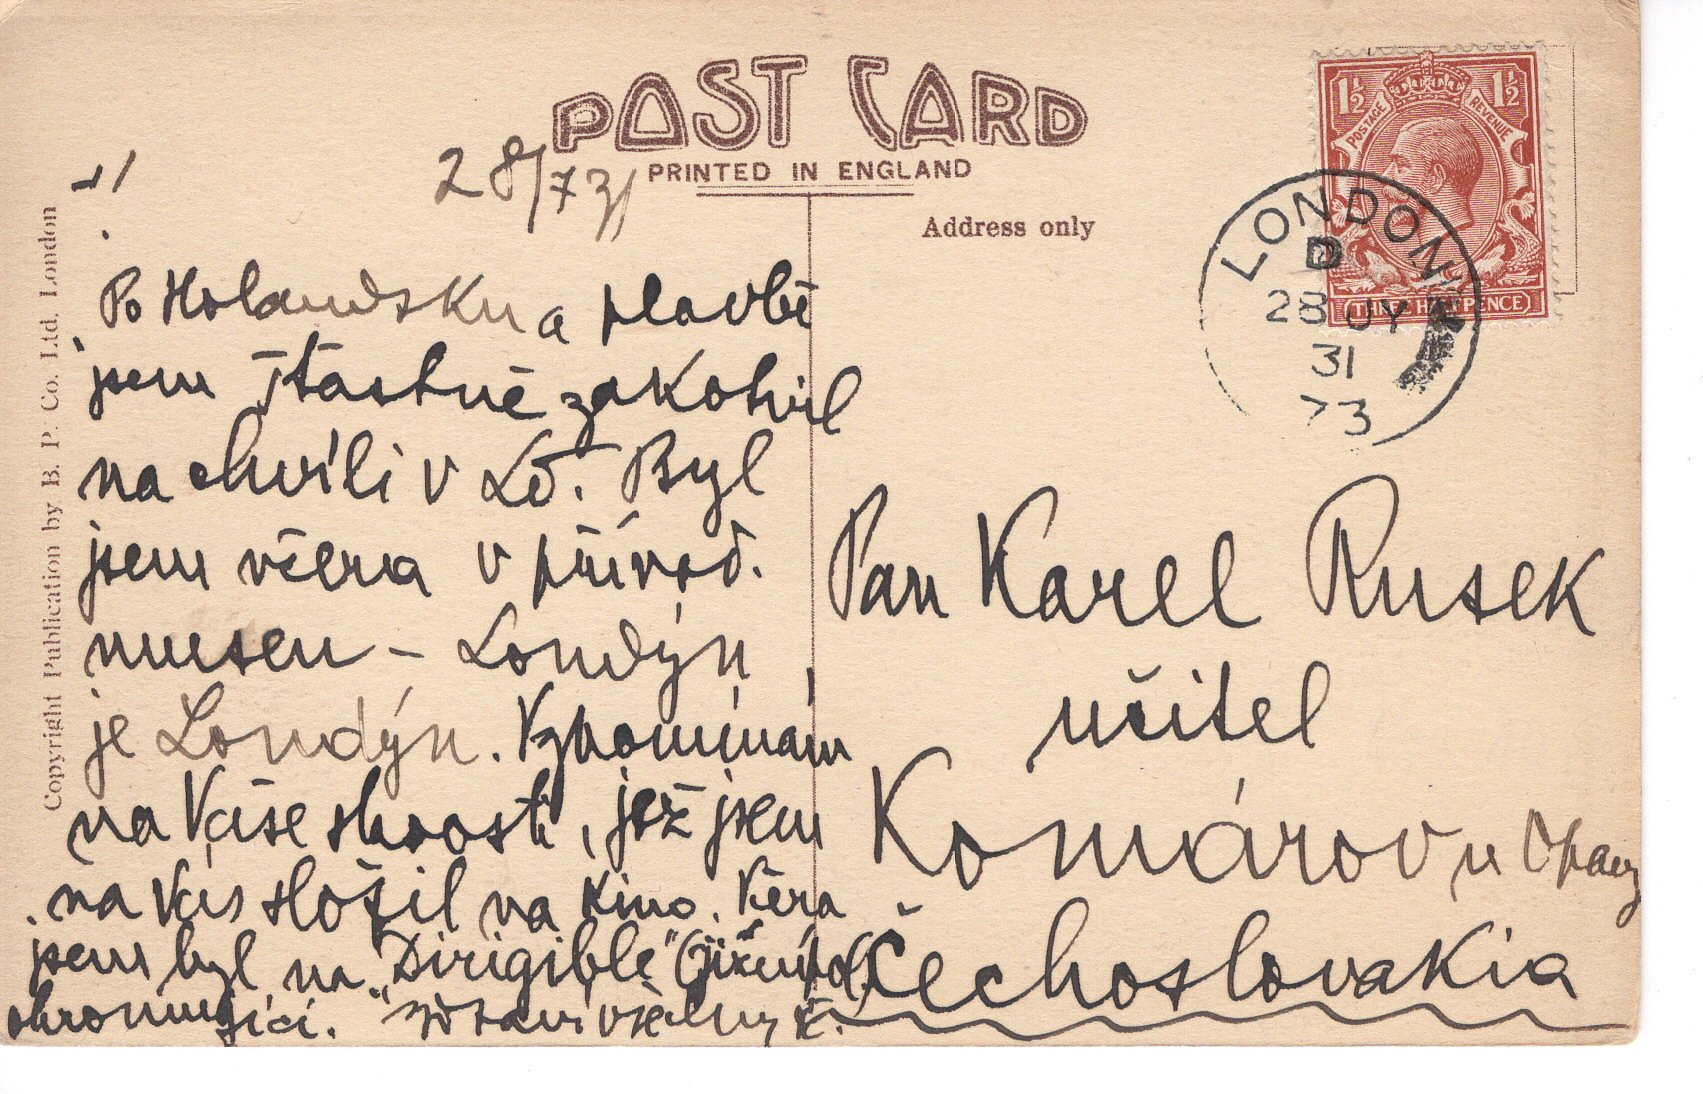 POST CARD
PRINTED IN ENGLAND
Address only
Copyright Publication by B. P. Co. Ltd, London
1½ 1½
POSTAGE REVENUE
THREE HALFPENCE
LONDON
D
28 JY
31
73
28/7 31
Po Holandsku a plavbě
jsem šťastně zakotvil
na chvíli v Lo. Byl
jsem včera v přírod.
museu – Londýn
je Londýn. Vzpomínám
na Vaše starosti, jež jsem
na Vás složil na Kino. Včera
jsem byl na „Dirigible"
ohromující. Zdraví všechny
Pan Karel Rusek
učitel
Komárov u Opavy
Čechoslovakia